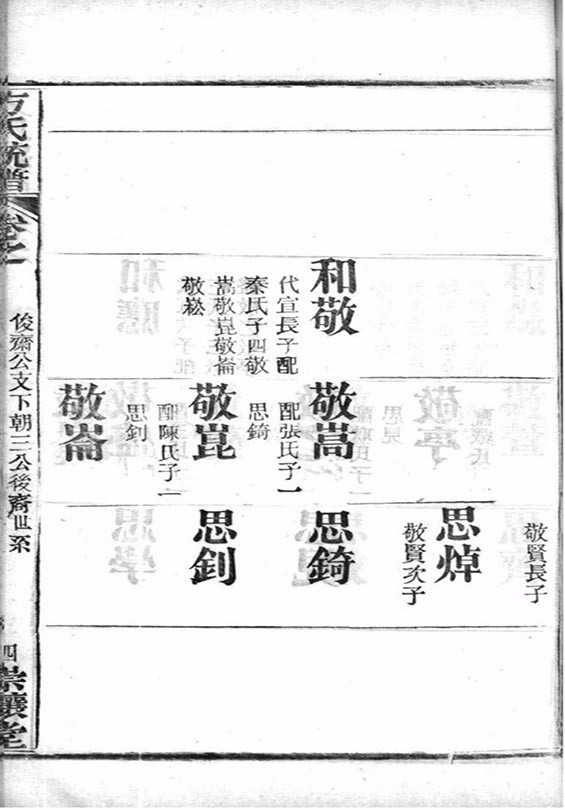 敬賢長子
思焯
敬賢次子
和敬
代宣長子配
秦氏子四敬
嵩敬崑敬崙
敬崧
敬嵩
配張氏子一
思錡
思錡
敬崑
配陳氏子一
思釗
思釗
敬崙
方氏統譜
卷之
俊齋公文下朝三公後裔世系
四